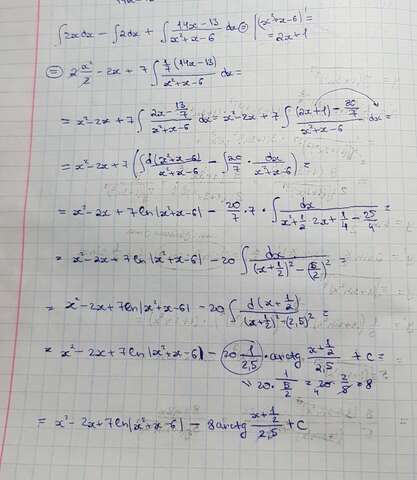 ∫2xdx - ∫2dx + ∫ (14x-13)/(x²+x-6) dx = |(x²+x-6)' = 2x+1
= 2 x²/2 - 2x + 7∫ (1/7 (14x-13))/(x²+x-6) dx =
= x²-2x + 7∫ (2x - 13/7)/(x²+x-6) dx = x²-2x + 7∫ ((2x+1) - 20/7)/(x²+x-6) dx =
= x²-2x + 7(∫ d(x²+x-6)/(x²+x-6) - ∫ 20/7 · dx/(x²+x-6) =
= x²-2x + 7ln|x²+x-6| - 20/7 · 7 · ∫ dx/(x²+1/2·2x+1/4-25/4) =
= x²-2x + 7ln|x²+x-6| - 20∫ dx/((x+1/2)²-(5/2)²) =
= x²-2x + 7ln|x²+x-6| - 20∫ d(x+1/2)/((x+1/2)²-(2,5)²) =
= x²-2x + 7ln|x²+x-6| - 20·1/2,5 · arctg (x+1/2)/2,5 + C =
20 · 1/(5/2) = 20 · 2/5 = 8
= x²-2x + 7ln|x²+x-6| - 8arctg (x+1/2)/2,5 + C